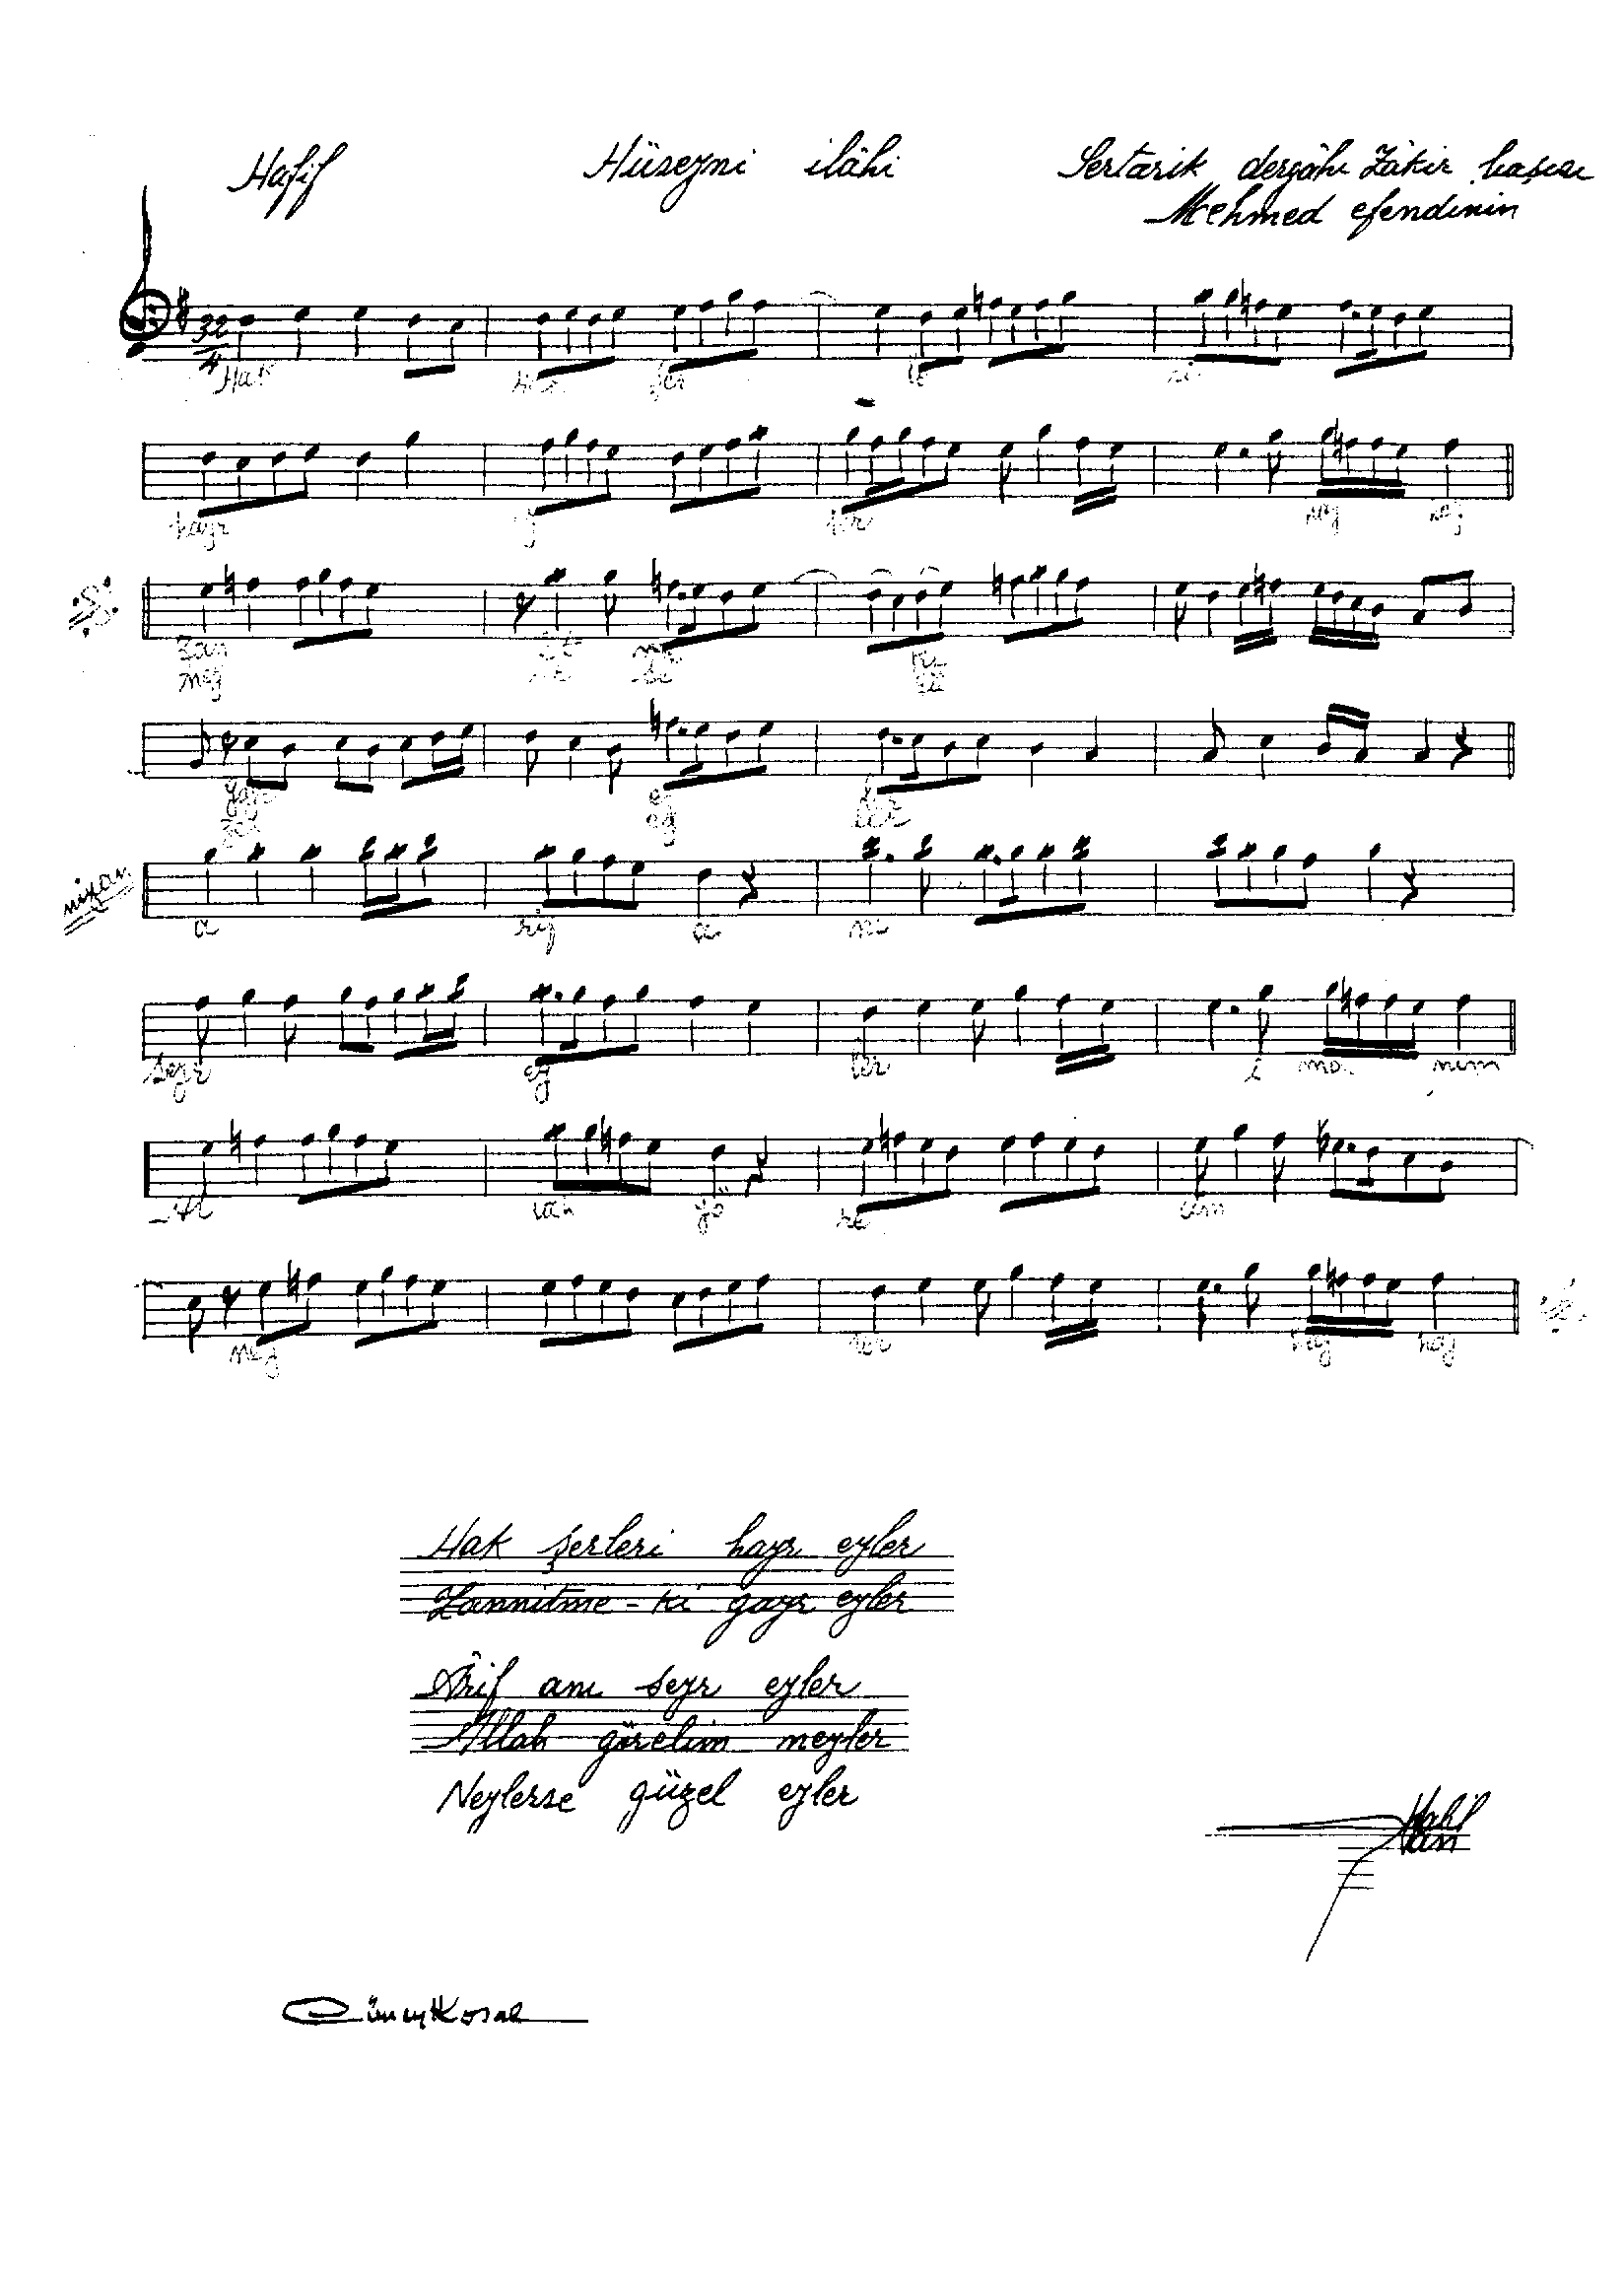 Hafif Hüseyni ilâhi Sertarik dergâhı Zâkir başısı
Mehmed efendinin
32
4
Hak şer le
hayr ey ler hey hey
Zan it me ki
ney
ey
ey ler
miyan
a rif a nı
seyr ey ler i mo nım
Al lah gö re lim
ney ler hey hey
Hak şerleri hayr eyler
Zannitme-ki gayr eyler
Ârif anı seyr eyler
Allah görelim neyler
Neylerse güzel eyler
Hakî
Can
Cüneyt Kosal